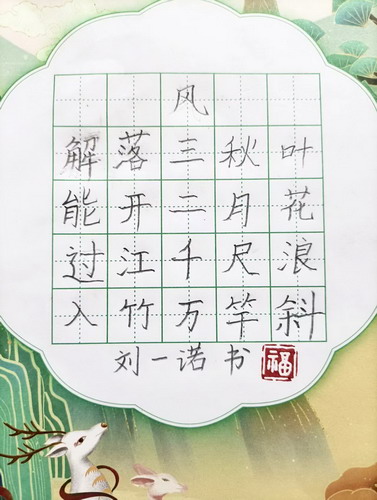 风
解落三秋叶
能开二月花
过江千尺浪
入竹万竿斜
刘一诺书 福